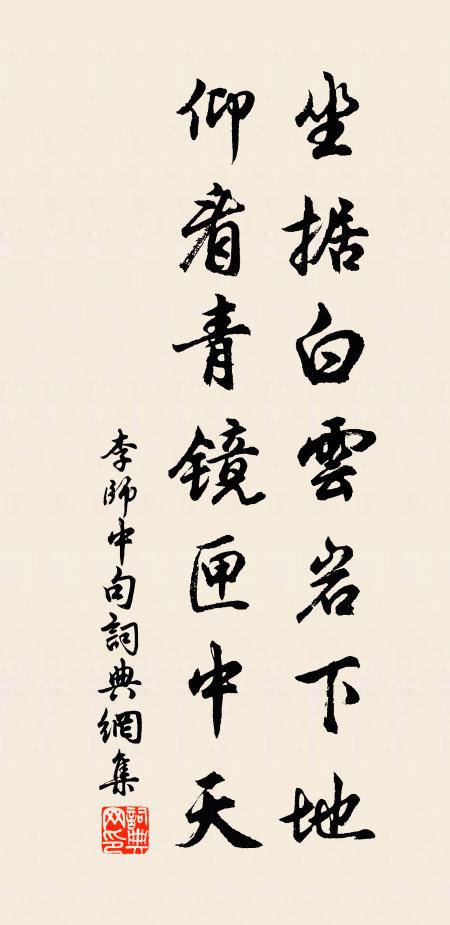 坐据白雲岩下地
仰看青镜匣中天
李師中句詞典網集
詞典网印